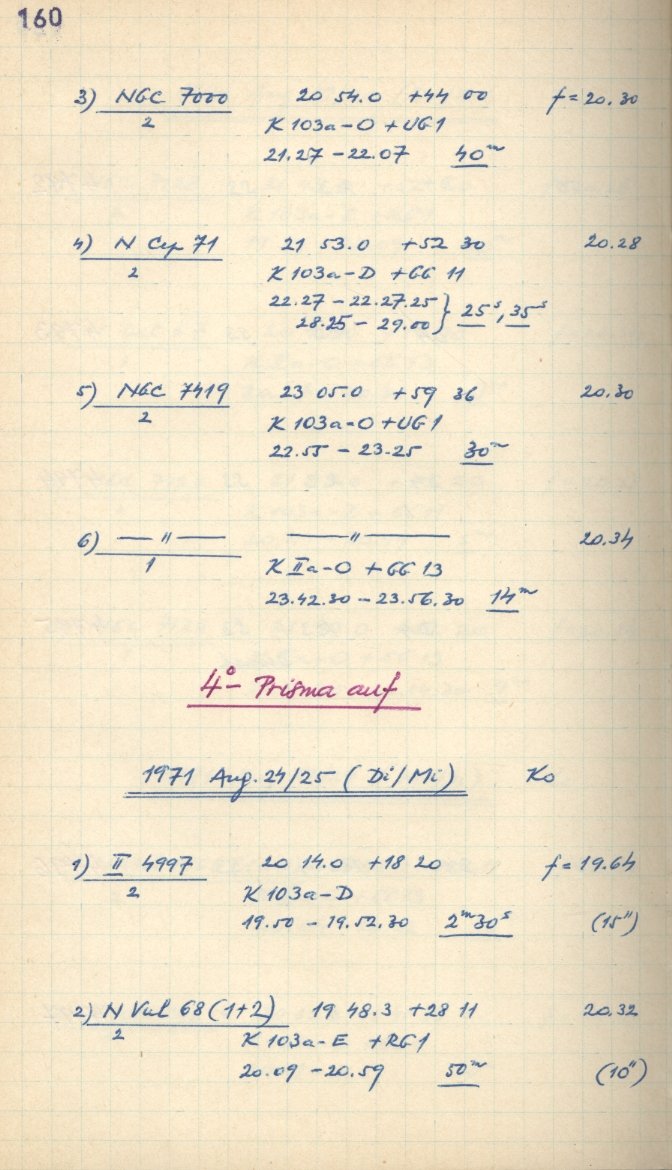 160
3) NGC 7000 20 54.0 +44 00 f = 20.30
2 K 103a-O + UG1
21.27 – 22.07 40ᵐ
4) N Cep 71 21 53.0 +52 30 20.28
2 K 103a-D + GG 11
22.27 – 22.27.25 } 25ˢ, 35ˢ
28.25 – 29.00
5) NGC 7419 23 05.0 +59 36 20.30
2 K 103a-O + UG1
22.55 – 23.25 30ᵐ
6) — " — — " — 20.34
1 K IIa-O + GG 13
23.42.30 – 23.56.30 14ᵐ
4°- Prisma auf
1971 Aug. 24/25 (Di/Mi) Ko
1) II 4997 20 14.0 +18 20 f = 19.64
2 K 103a-D
19.50 – 19.52.30 2ᵐ30ˢ (15")
2) N Vul 68 (1+2) 19 48.3 +28 11 20.32
2 K 103a-E + RG1
20.09 – 20.59 50ᵐ (10")